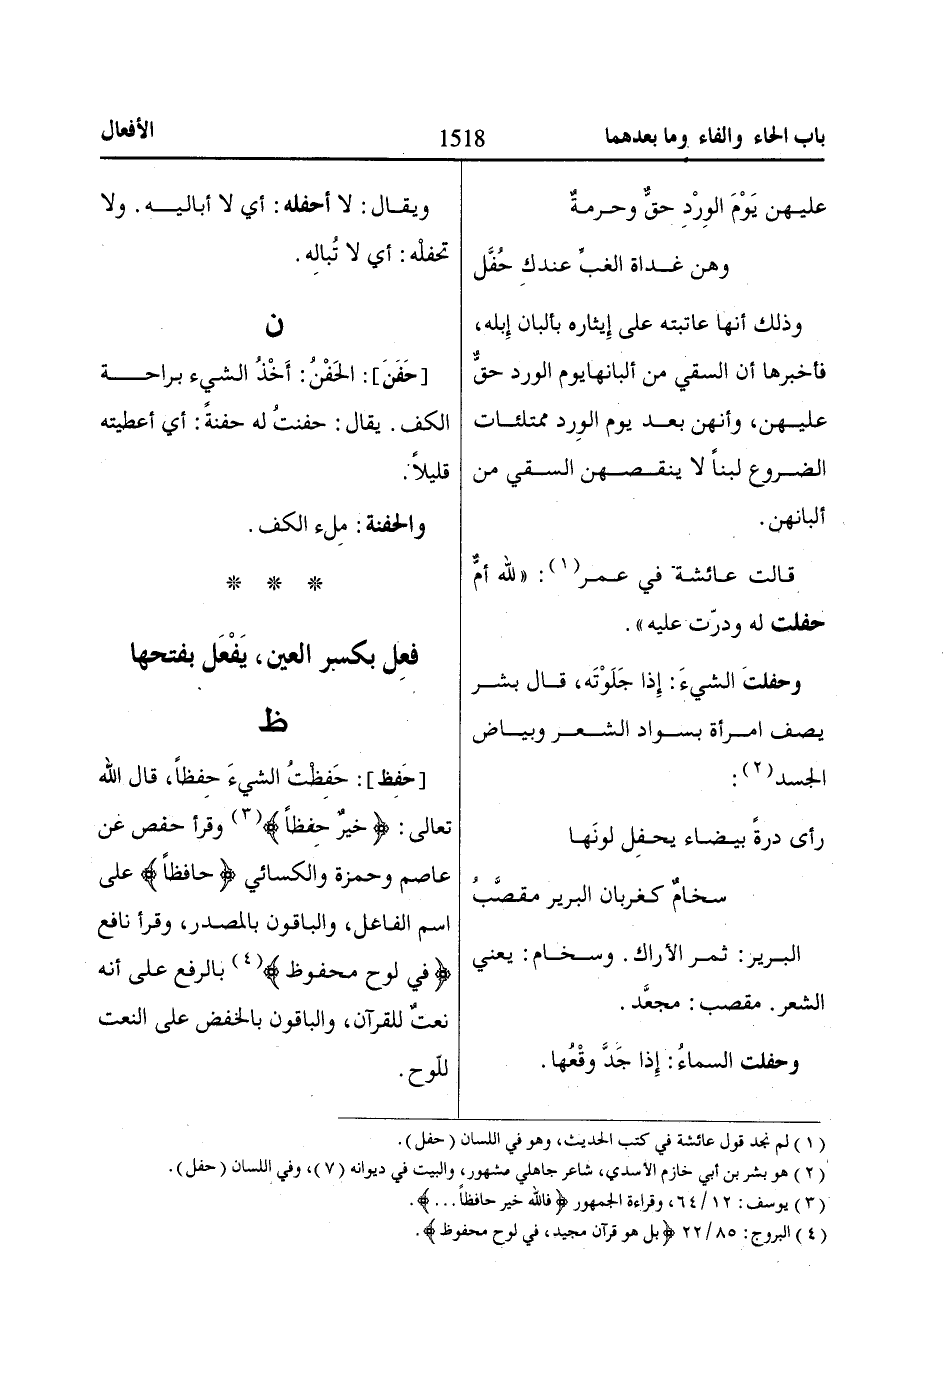 باب الحاء والفاء وما بعدهما
1518
الأفعال
عليهن يَوْمَ الوِرْدِ حقٌّ وحرمةٌ
وهن غداة الغبِّ عندك حُفَّل
وذلك أنها عاتبته على إيثاره بألبان إبله،
فأخبرها أن السقي من ألبانها يوم الورد حقٌّ
عليهن، وأنهن بعد يوم الورد ممتلئات
الضروع لبناً لا ينقصهن السقي من
ألبانهن.
قالت عائشة في عمر(١): «لله أمٌّ
حفلت له ودرّت عليه».
وحفلت الشيءَ: إذا جَلَوْتَه، قال بشر
يصف امرأة بسواد الشعر وبياض
الجسد(٢):
رأى درةً بيضاء يحفِل لونَها
سخامٌ كغربان البرير مقصَّبُ
البرير: ثمر الأراك. وسخام: يعني
الشعر. مقصب: مجعَّد.
وحفلت السماءُ: إذا جَدَّ وقْعُها.
ويقال: لا أحفله: أي لا أباليه. ولا
تحفلْه: أي لا تُبالِه.
ن
[حَفَنَ]: الحَفْنُ: أَخْذُ الشيء براحة
الكف. يقال: حفنتُ له حفنةً: أي أعطيته
قليلاً.
والحفنة: مِلء الكف.
* * *
فعِل بكسر العين، يَفْعَل بفتحها
ظ
[حَفِظ]: حَفِظْتُ الشيءَ حفِظاً، قال الله
تعالى: ﴿خيرٌ حفِظاً﴾(٣) وقرأ حفص عن
عاصم وحمزة والكسائي ﴿حافظاً﴾ على
اسم الفاعل، والباقون بالمصدر، وقرأ نافع
﴿في لوح محفوظ﴾(٤) بالرفع على أنه
نعتٌ للقرآن، والباقون بالخفض على النعت
للّوح.
(١) لم نجد قول عائشة في كتب الحديث، وهو في اللسان (حفل).
(٢) هو بشر بن أبي خازم الأسدي، شاعر جاهلي مشهور، والبيت في ديوانه (٧)، وفي اللسان (حفل).
(٣) يوسف: ٦٤/١٢، وقراءة الجمهور ﴿فالله خير حافظاً...﴾.
(٤) البروج: ٢٢/٨٥ ﴿بل هو قرآن مجيد، في لوح محفوظ﴾.